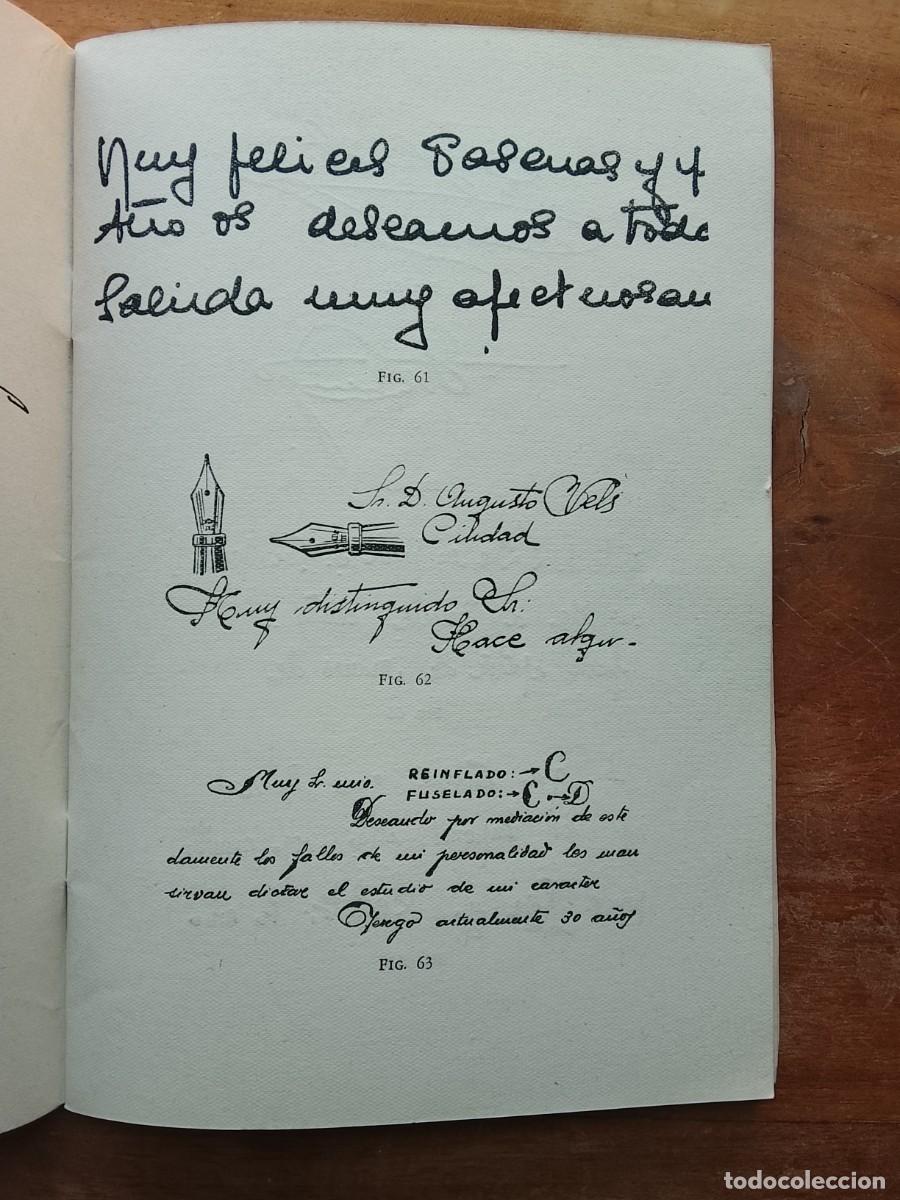 Muy felices Pascuas y
Año os deseamos a toda
Salud muy afectuosam
FIG. 61
Sr. D. Augusto Vels
Ciudad
Muy distinguido Sr:
Hace algu-
FIG. 62
Muy Sr. mio. REINFLADO: → C
FUSELADO: → C → D
Deseando por mediación de este
damente los fallos de mi personalidad les man
sirvan dictar el estudio de mi caracter
Tengo actualmente 30 años
FIG. 63
todocoleccion